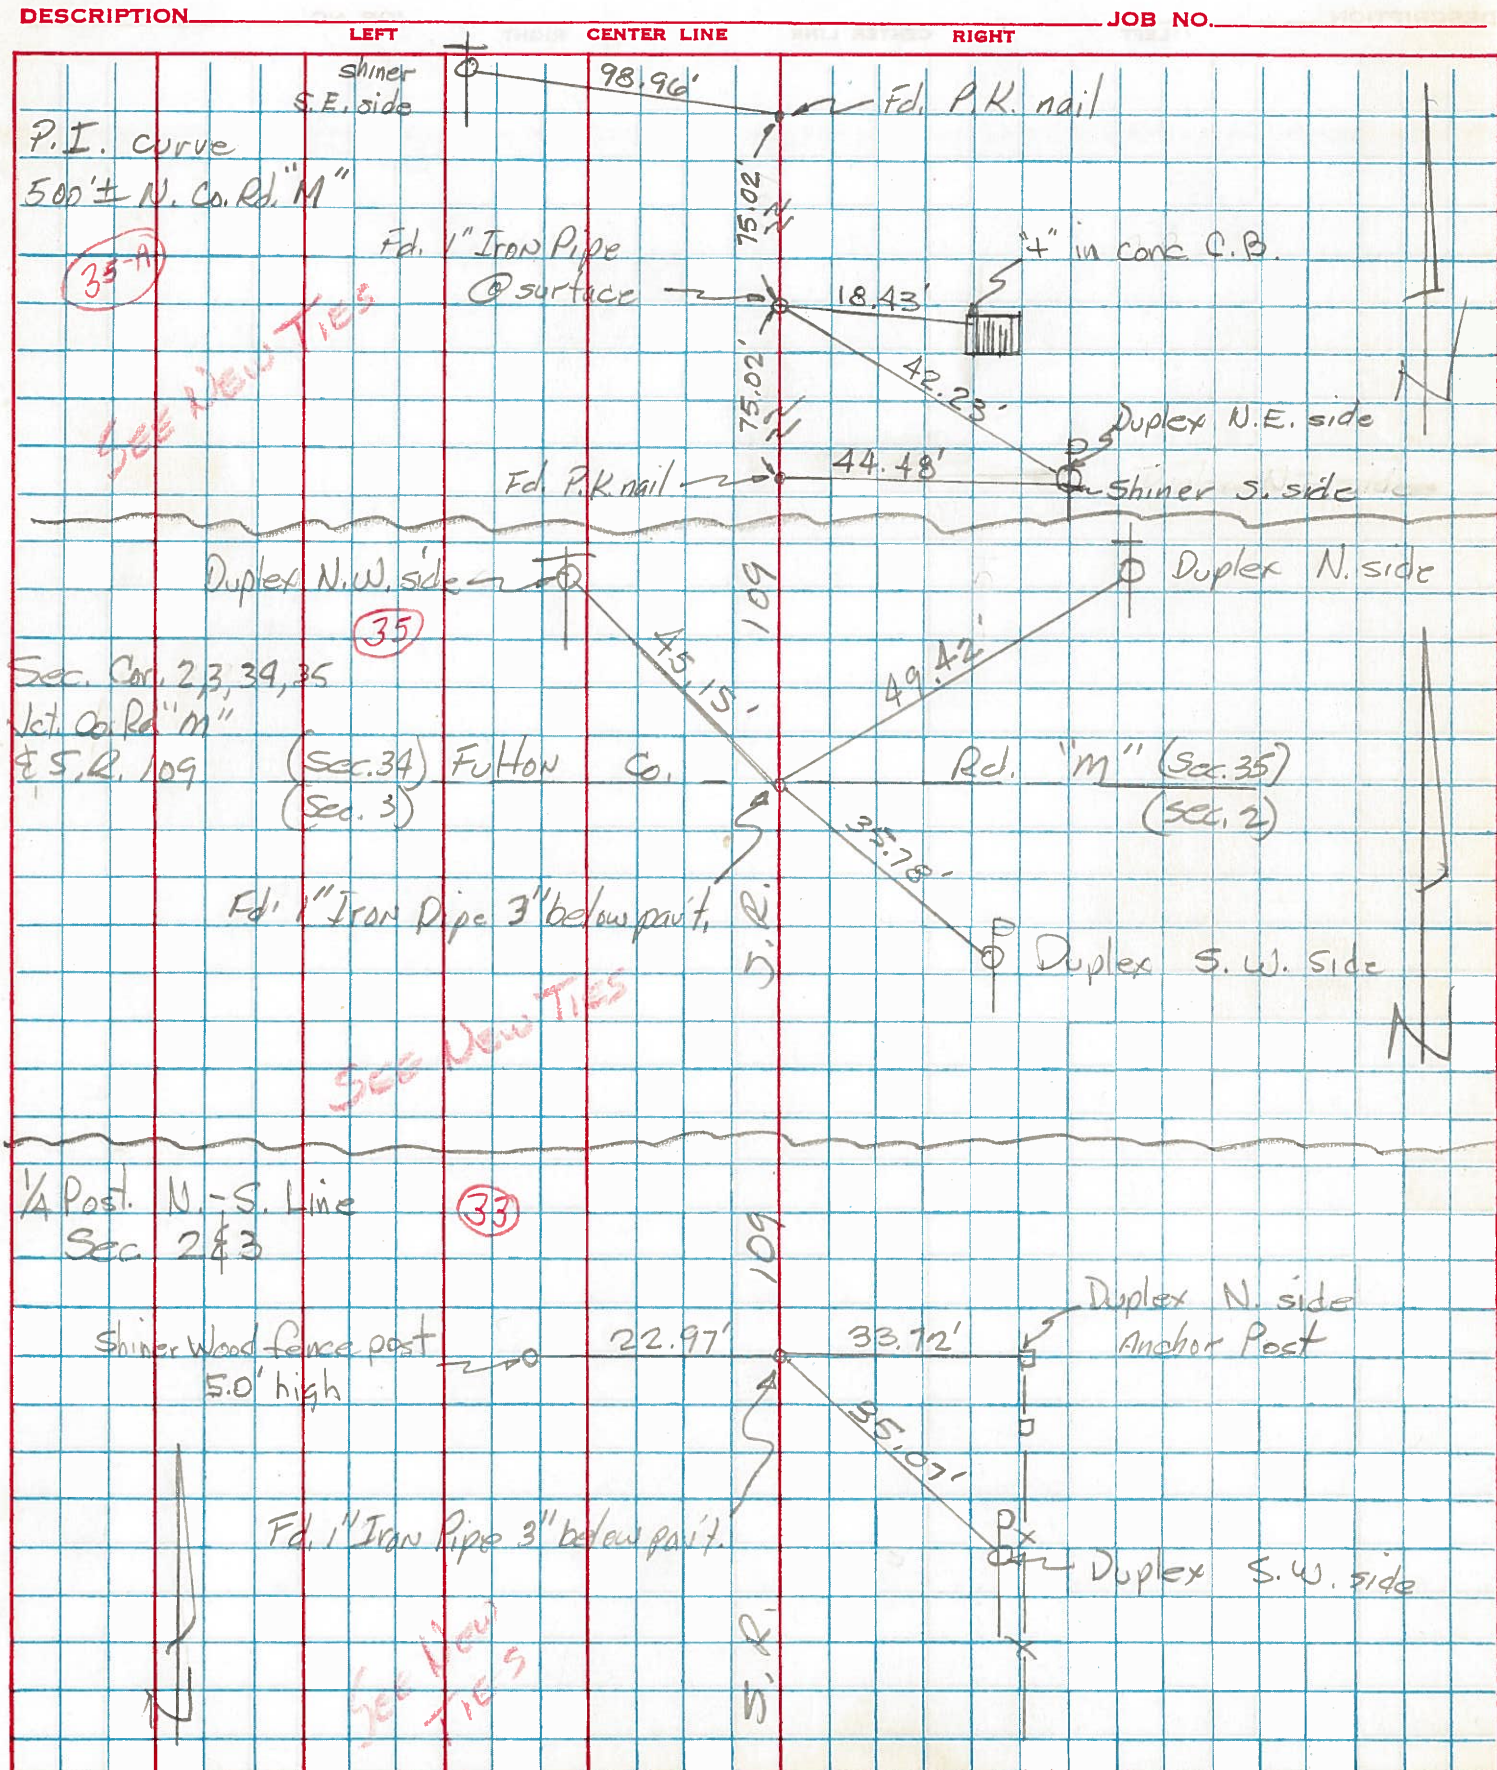 DESCRIPTION JOB NO.
LEFT CENTER LINE RIGHT
shiner
S.E. side
98.96'
Fd. P.K. nail
P.I. curve
500'± N. Co. Rd. "M"
75.02'
35-A
Fd. 1" Iron Pipe
@ surface
"+" in conc C.B.
18.43'
SEE NEW TIES
75.02'
42.23'
Duplex N.E. side
P
Fd. P.K. nail
44.48'
Shiner S. side
N
Duplex N.W. side
109
Duplex N. side
35
45.15'
49.42'
Sec. Cor. 2,3,34,35
Jct. Co. Rd "M"
& S.R. 109
(Sec. 34) Fulton Co. Rd. "M" (Sec. 35)
(Sec. 3) (Sec. 2)
35.78'
Fd. 1" Iron Pipe 3" below pav't.
S.R.
P
Duplex S.W. side
SEE NEW TIES
N
1/4 Post. N.-S. Line
Sec. 2 & 3
33
109
Duplex N. side
Anchor Post
Shiner Wood fence post
5.0' high
22.97'
33.72'
35.07'
Fd. 1" Iron Pipe 3" below pav't.
P
Duplex S.W. side
SEE NEW
TIES
S.R.
N